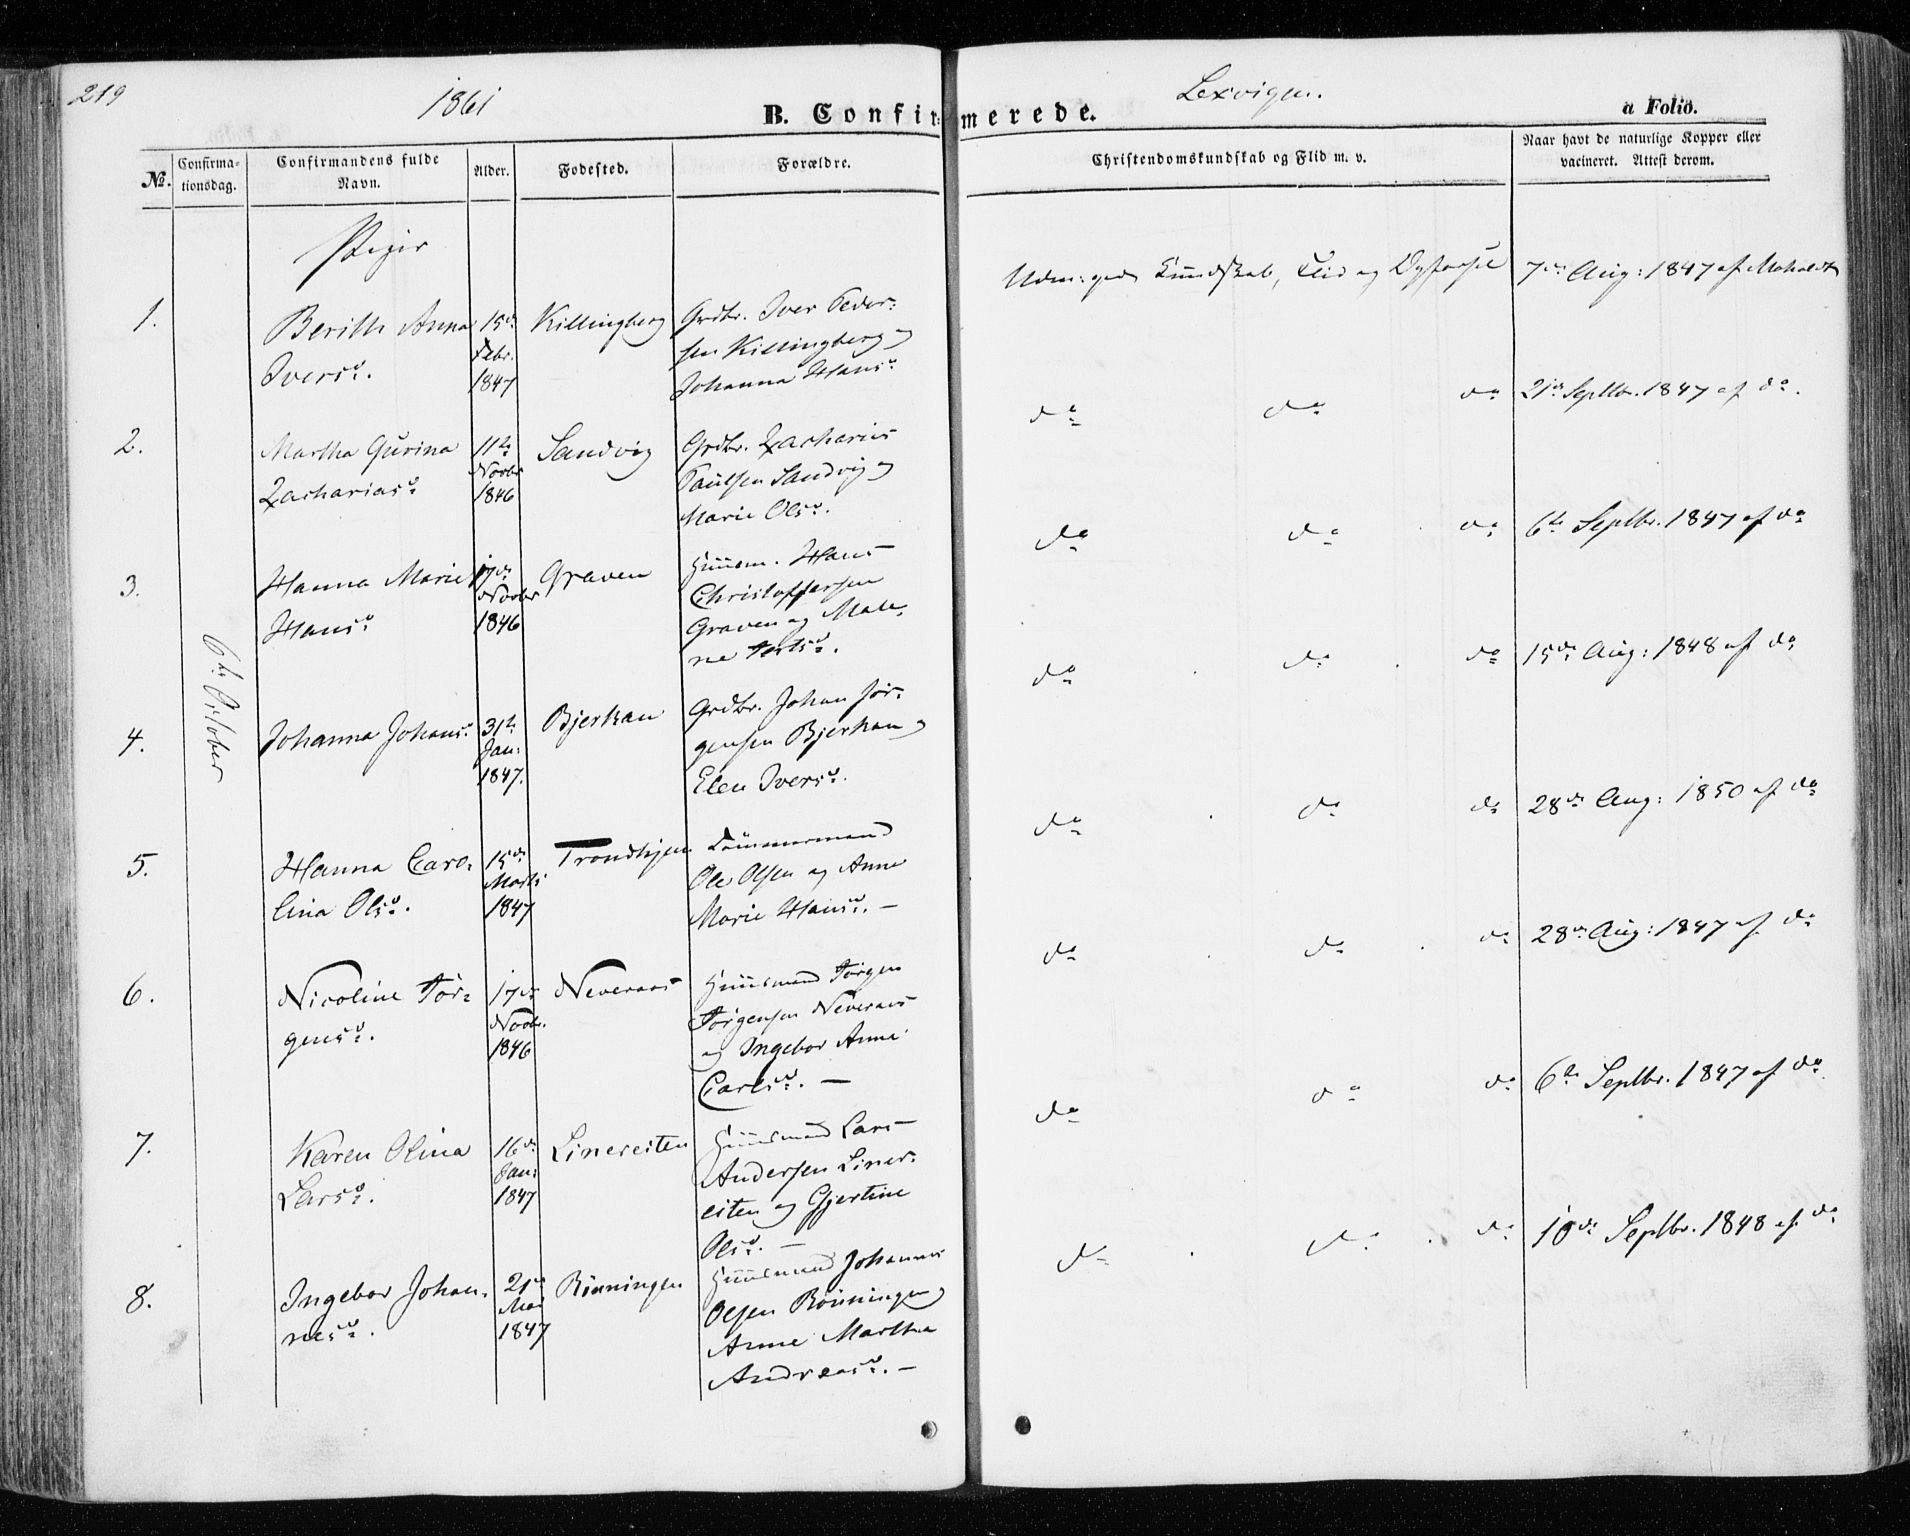 219
1861
Lexvigen.
B. Confirmerede.
a Folio.
No.
Confirma-
tionsdag.
Confirmandens fulde
Navn.
Alder.
Fødested.
Forældre.
Christendomskundskab og Flid m. v.
Naar havt de naturlige Kopper eller
vacineret. Attest derom.
Piger
6te October
1.
Berith Anna
Iversd.
15de
Febr.
1847
Killingberg
Grdbr. Iver Peder-
sen Killingberg og
Johanna Hansd.
Udm: god Kundskab, Flid og Opførsel
7de Aug: 1847 af Moholdt
2.
Martha Gurina
Zachariasd.
11te
Novbr
1846
Sandvig
Grdbr. Zacharias
Paulsen Sandvig og
Marie Olsd.
do do do
21de Septbr. 1847 af do.
3.
Hanna Marie
Hansd.
17de
Novbr
1846
Graven
Huusm. Hans
Christophersen
Graven og Male-
ne
do do do
6te Septbr. 1847 af do
4.
Johanna Johansd.
31te
Jan:
1847.
Bjerkan
Grdbr. Johan Jør-
gensen Bjerkan og
Elen Iversd.
do do do
15de Aug: 1848 af do
5.
Hanna Caro-
lina Olsd.
15de
Marts
1847
Trondhjem
Tømmermand
Ole Olsen og Anne
Marie Hansd. —
do do do
28de Aug: 1850 af do
6.
Nicoline Jør-
gensd.
17de
Novbr.
1846
Neveraas
Huusmand Jørgen
Jørgensen Neveraas
og Ingebor Anne
Carlsd. —
do do do
28de Aug: 1847 af do
7.
Karen Olina
Larsd.
16de
Jan:
1847
Linereiten
Huusmand Lars
Andersen Liner-
eiten og Gjertine
Olsd. —
do do do
6te Septbr. 1847 af do
8.
Ingebor Johan-
nesd.
21de
Mai
1847
Rønningen
Huusmand Johannes
Olsen Rønningen og
Anne Martha
Andreasd. —
do do do
10de Septbr. 1848 af do